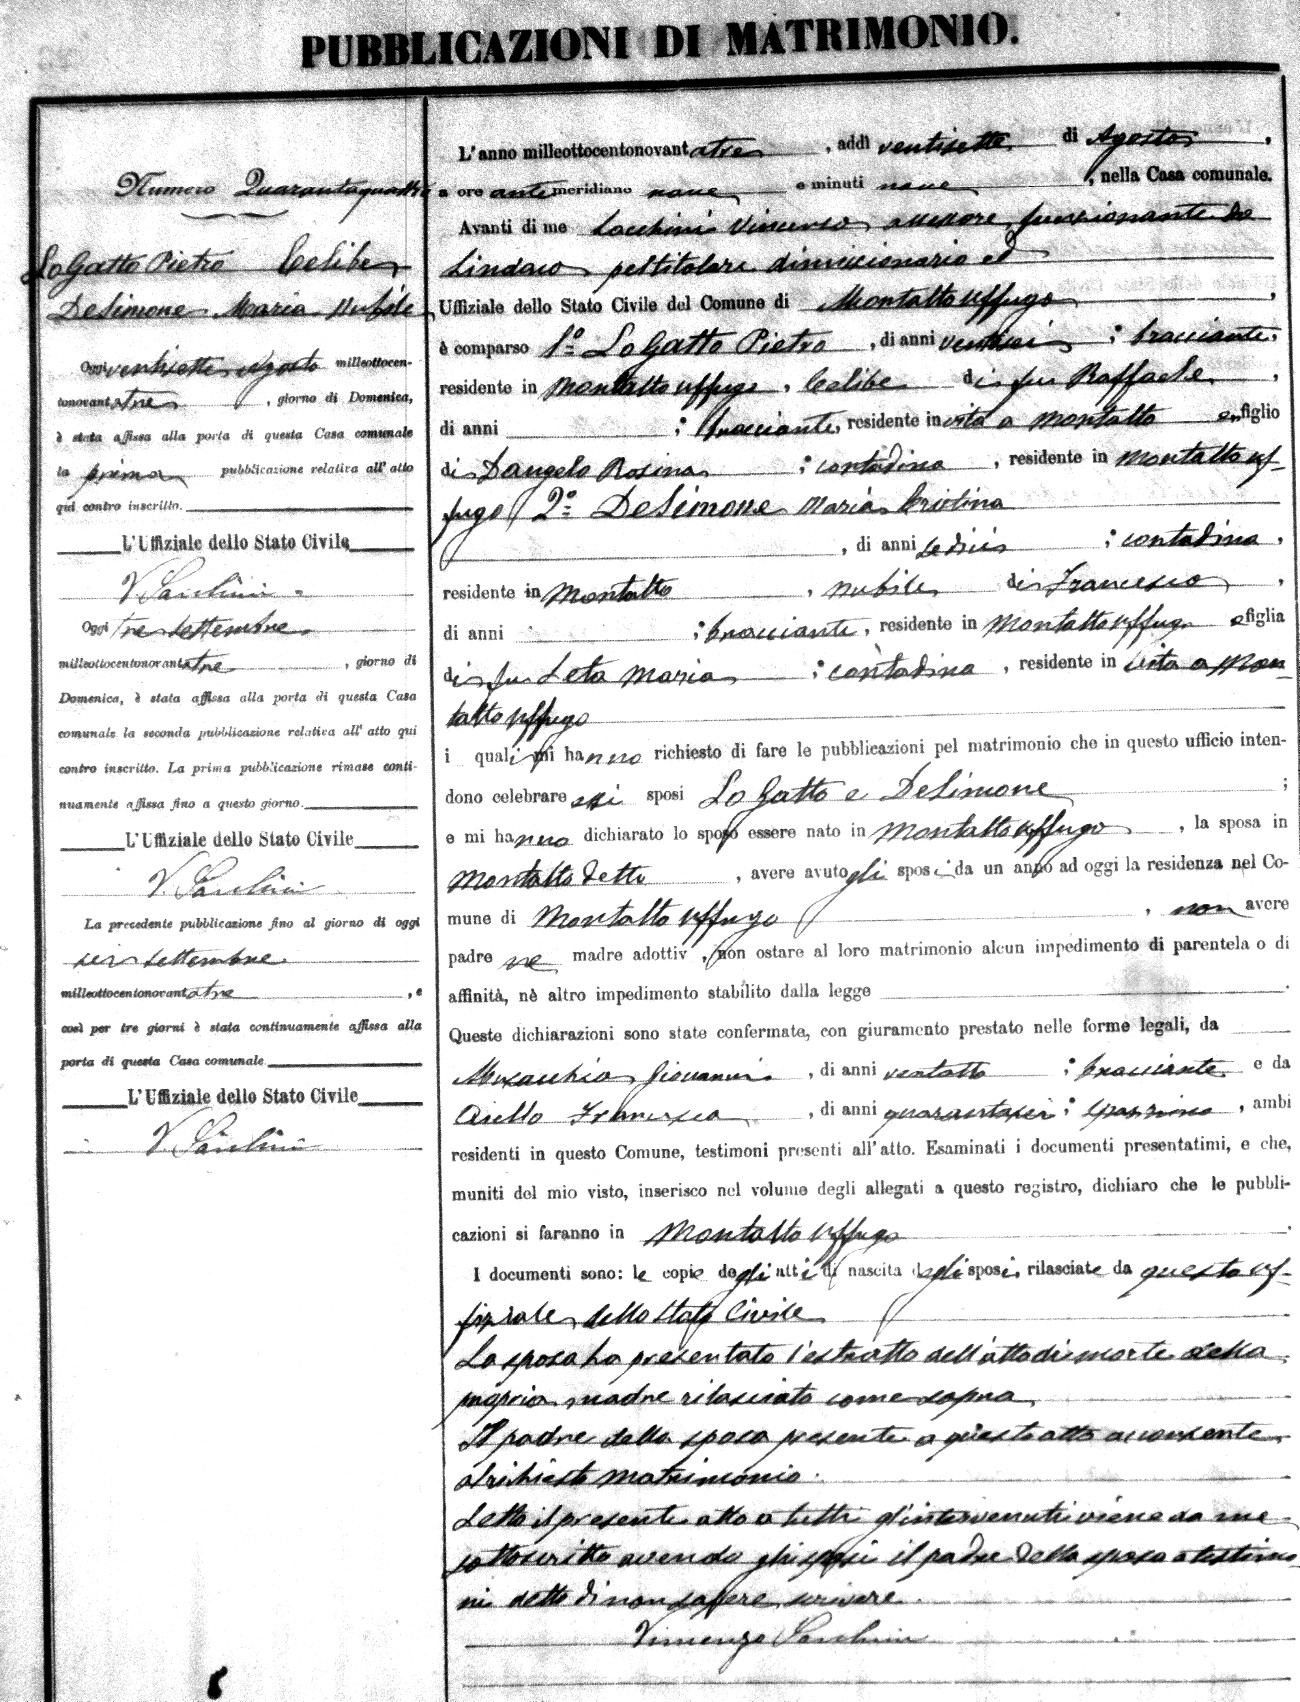 PUBBLICAZIONI DI MATRIMONIO.
Numero Quarantaquattro
LoGatto Pietro Celibe
DeSimone Maria Nubile
Oggi ventisette Agosto milleottocen-
tonovantatre, giorno di Domenica,
è stata affissa alla porta di questa Casa comunale
la prima pubblicazione relativa all'atto
qui contro inscritto.
L'Uffiziale dello Stato Civile
V.
Oggi tre settembre
milleottocentonovantatre, giorno di
Domenica, è stata affissa alla porta di questa Casa
comunale la seconda pubblicazione relativa all'atto qui
contro inscritto. La prima pubblicazione rimase conti-
nuamente affissa fino a questo giorno.
L'Uffiziale dello Stato Civile
V.
La precedente pubblicazione fino al giorno di oggi
sei settembre
milleottocentonovantatre, e
così per tre giorni è stata continuamente affissa alla
porta di questa Casa comunale.
L'Uffiziale dello Stato Civile
V.
L'anno milleottocentonovantatre, addì ventisette di Agosto,
a ore antemeridiane nove e minuti nove, nella Casa comunale.
Avanti di me Vincenzo assessore funzionante da
Sindaco pel titolare dimissionario ed
Uffiziale dello Stato Civile del Comune di Montalto Uffugo,
è comparso 1º LoGatto Pietro, di anni ventisei; bracciante,
residente in Montalto Uffugo, Celibe di fu Raffaele,
di anni ; bracciante, residente in vita a Montalto e figlio
di Dangelo Rosina; contadina, residente in Montalto Uf-
fugo 2º DeSimone Maria Cristina
, di anni sedici; contadina,
residente in Montalto, nubile di Francesco,
di anni ; bracciante, residente in Montalto Uffugo e figlia
di fu Leta Maria; contadina, residente in vita a Mon-
talto Uffugo
i quali mi hanno richiesto di fare le pubblicazioni pel matrimonio che in questo ufficio inten-
dono celebrare essi sposi LoGatto e DeSimone;
e mi hanno dichiarato lo sposo essere nato in Montalto Uffugo, la sposa in
Montalto detto, avere avuto gli sposi da un anno ad oggi la residenza nel Co-
mune di Montalto Uffugo, non avere
padre ne madre adottiv, non ostare al loro matrimonio alcun impedimento di parentela o di
affinità, nè altro impedimento stabilito dalla legge.
Queste dichiarazioni sono state confermate, con giuramento prestato nelle forme legali, da
Musacchio Giovanni, di anni ventotto; bracciante e da
Aiello Francesco, di anni quarantasei; spazzino, ambi
residenti in questo Comune, testimoni presenti all'atto. Esaminati i documenti presentatimi, e che,
muniti del mio visto, inserisco nel volume degli allegati a questo registro, dichiaro che le pubbli-
cazioni si faranno in Montalto Uffugo.
I documenti sono: le copie degli atti di nascita degli sposi, rilasciate da questo Uf-
fiziale dello Stato Civile
La sposa ha presentato l'estratto dell'atto di morte della
propria madre rilasciato come sopra
Il padre della sposa presente a questo atto acconsente
al richiesto matrimonio.
Letto il presente atto a tutti gl'intervenuti viene da me
sottoscritto avendo gli sposi il padre della sposa e testimo-
ni detto di non sapere scrivere.
Vincenzo